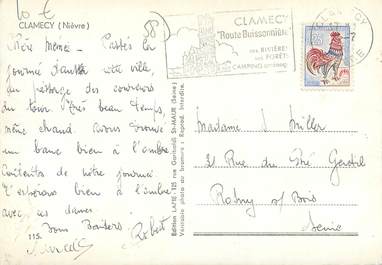 10 €
58
CLAMECY (Nièvre)
CLAMECY
"Route Buissonnière"
ses RIVIÈRES
ses FORÊTS
CAMPING
CLAMECY
Chère Mémée - Passés la
journée dans cette ville,
au passage des coureurs
du tour. Très beau temps,
même chaud. Avons trouvé
un banc bien à l'ombre
Contents de notre journée
T'espérons bien à l'ombre
avec ces dames.
Bons Baisers
Robert
115.
Edition LAPIE 125 rue Garibaldi St-MAUR (Seine)
Véritable photo au bromure : Reprod. interdite.
Madame Miller
21 Rue du Pré Gentil
Rosny s/ Bois
Seine